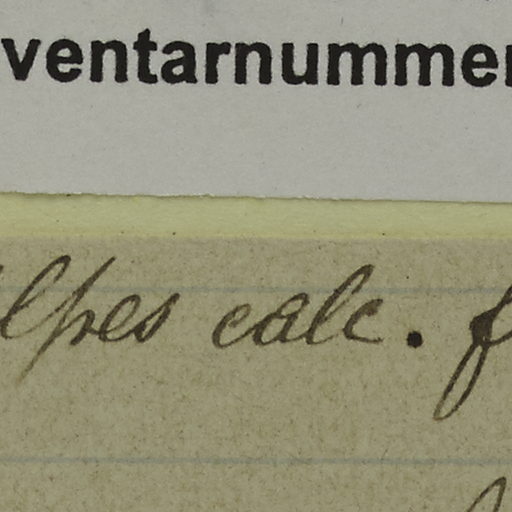 ventarnummer
lpes calc. f